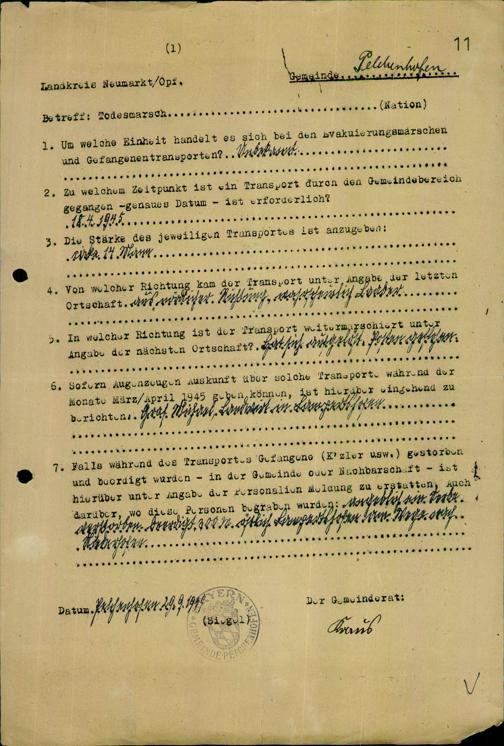 11
(1)
Landkreis Neumarkt/Opf.
Gemeinde Pelchenhofen
Betreff: Todesmarsch........................(Nation)
1. Um welche Einheit handelt es sich bei den Evakuierungsmärschen
und Gefangenentransporten? Unbekannt.
2. Zu welchem Zeitpunkt ist ein Transport durch den Gemeindebereich
gegangen -genaues Datum - ist erforderlich?
18.4.1945
3. Die Stärke des jeweiligen Transportes ist anzugeben:
zirka 14 Mann
4. Von welcher Richtung kam der Transport unter Angabe der letzten
Ortschaft. aus nördlicher Richtung, wahrscheinlich
5. In welcher Richtung ist der Transport weitermarschiert unter
Angabe der nächsten Ortschaft? hat sich aufgelöst.
6. Sofern Augenzeugen Auskunft über solche Transporte während der
Monate März/April 1945 geben können, ist hierüber eingehend zu
berichten: Graf Michael, Landwirt in
7. Falls während des Transportes Gefangene (K'zler usw.) gestorben
und beerdigt wurden - in der Gemeinde oder Nachbarschaft - ist
hierüber unter Angabe der Personalien Meldung zu erstatten, Auch
darüber, wo diese Personen begraben wurden: angeblich ein
verstorben. beerdigt 200 m östlich
Datum. Pelchenhofen 29.9.
(Siegel)
BAYERN
GEMEINDE PELCHENHOFEN
Der Gemeinderat:
Kraus